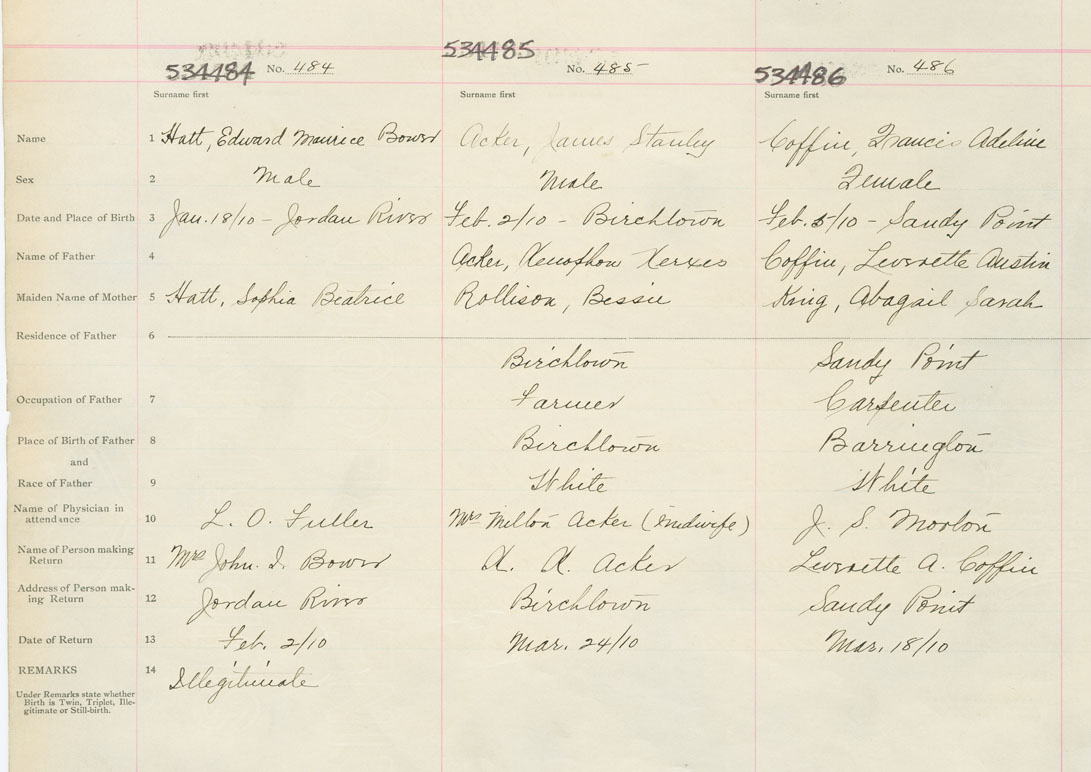 534484 No. 484 534485 No. 485 534486 No. 486
Surname first Surname first Surname first
Name 1 Hatt, Edward Maurice Bower Acker, James Stanley Coffin, Francis Adeline
Sex 2 Male Male Female
Date and Place of Birth 3 Jan. 18/10 - Jordan River Feb. 2/10 - Birchtown Feb. 5/10 - Sandy Point
Name of Father 4 Acker, Xenophon Xerxes Coffin, Leverette Austin
Maiden Name of Mother 5 Hatt, Sophia Beatrice Rollison, Bessie King, Abagail Sarah
Residence of Father 6
Birchtown Sandy Point
Occupation of Father 7 Farmer Carpenter
Place of Birth of Father 8 Birchtown Barrington
and
Race of Father 9 White White
Name of Physician in
attendance 10 L. O. Fuller Mrs Milton Acker (midwife) J. S. Morton
Name of Person making
Return 11 Mrs John. I. Bower X. X. Acker Leverette A. Coffin
Address of Person mak-
ing Return 12 Jordan River Birchtown Sandy Point
Date of Return 13 Feb. 2/10 Mar. 24/10 Mar. 18/10
REMARKS 14 Illegitimate
Under Remarks state whether
Birth is Twin, Triplet, Ille-
gitimate or Still-birth.